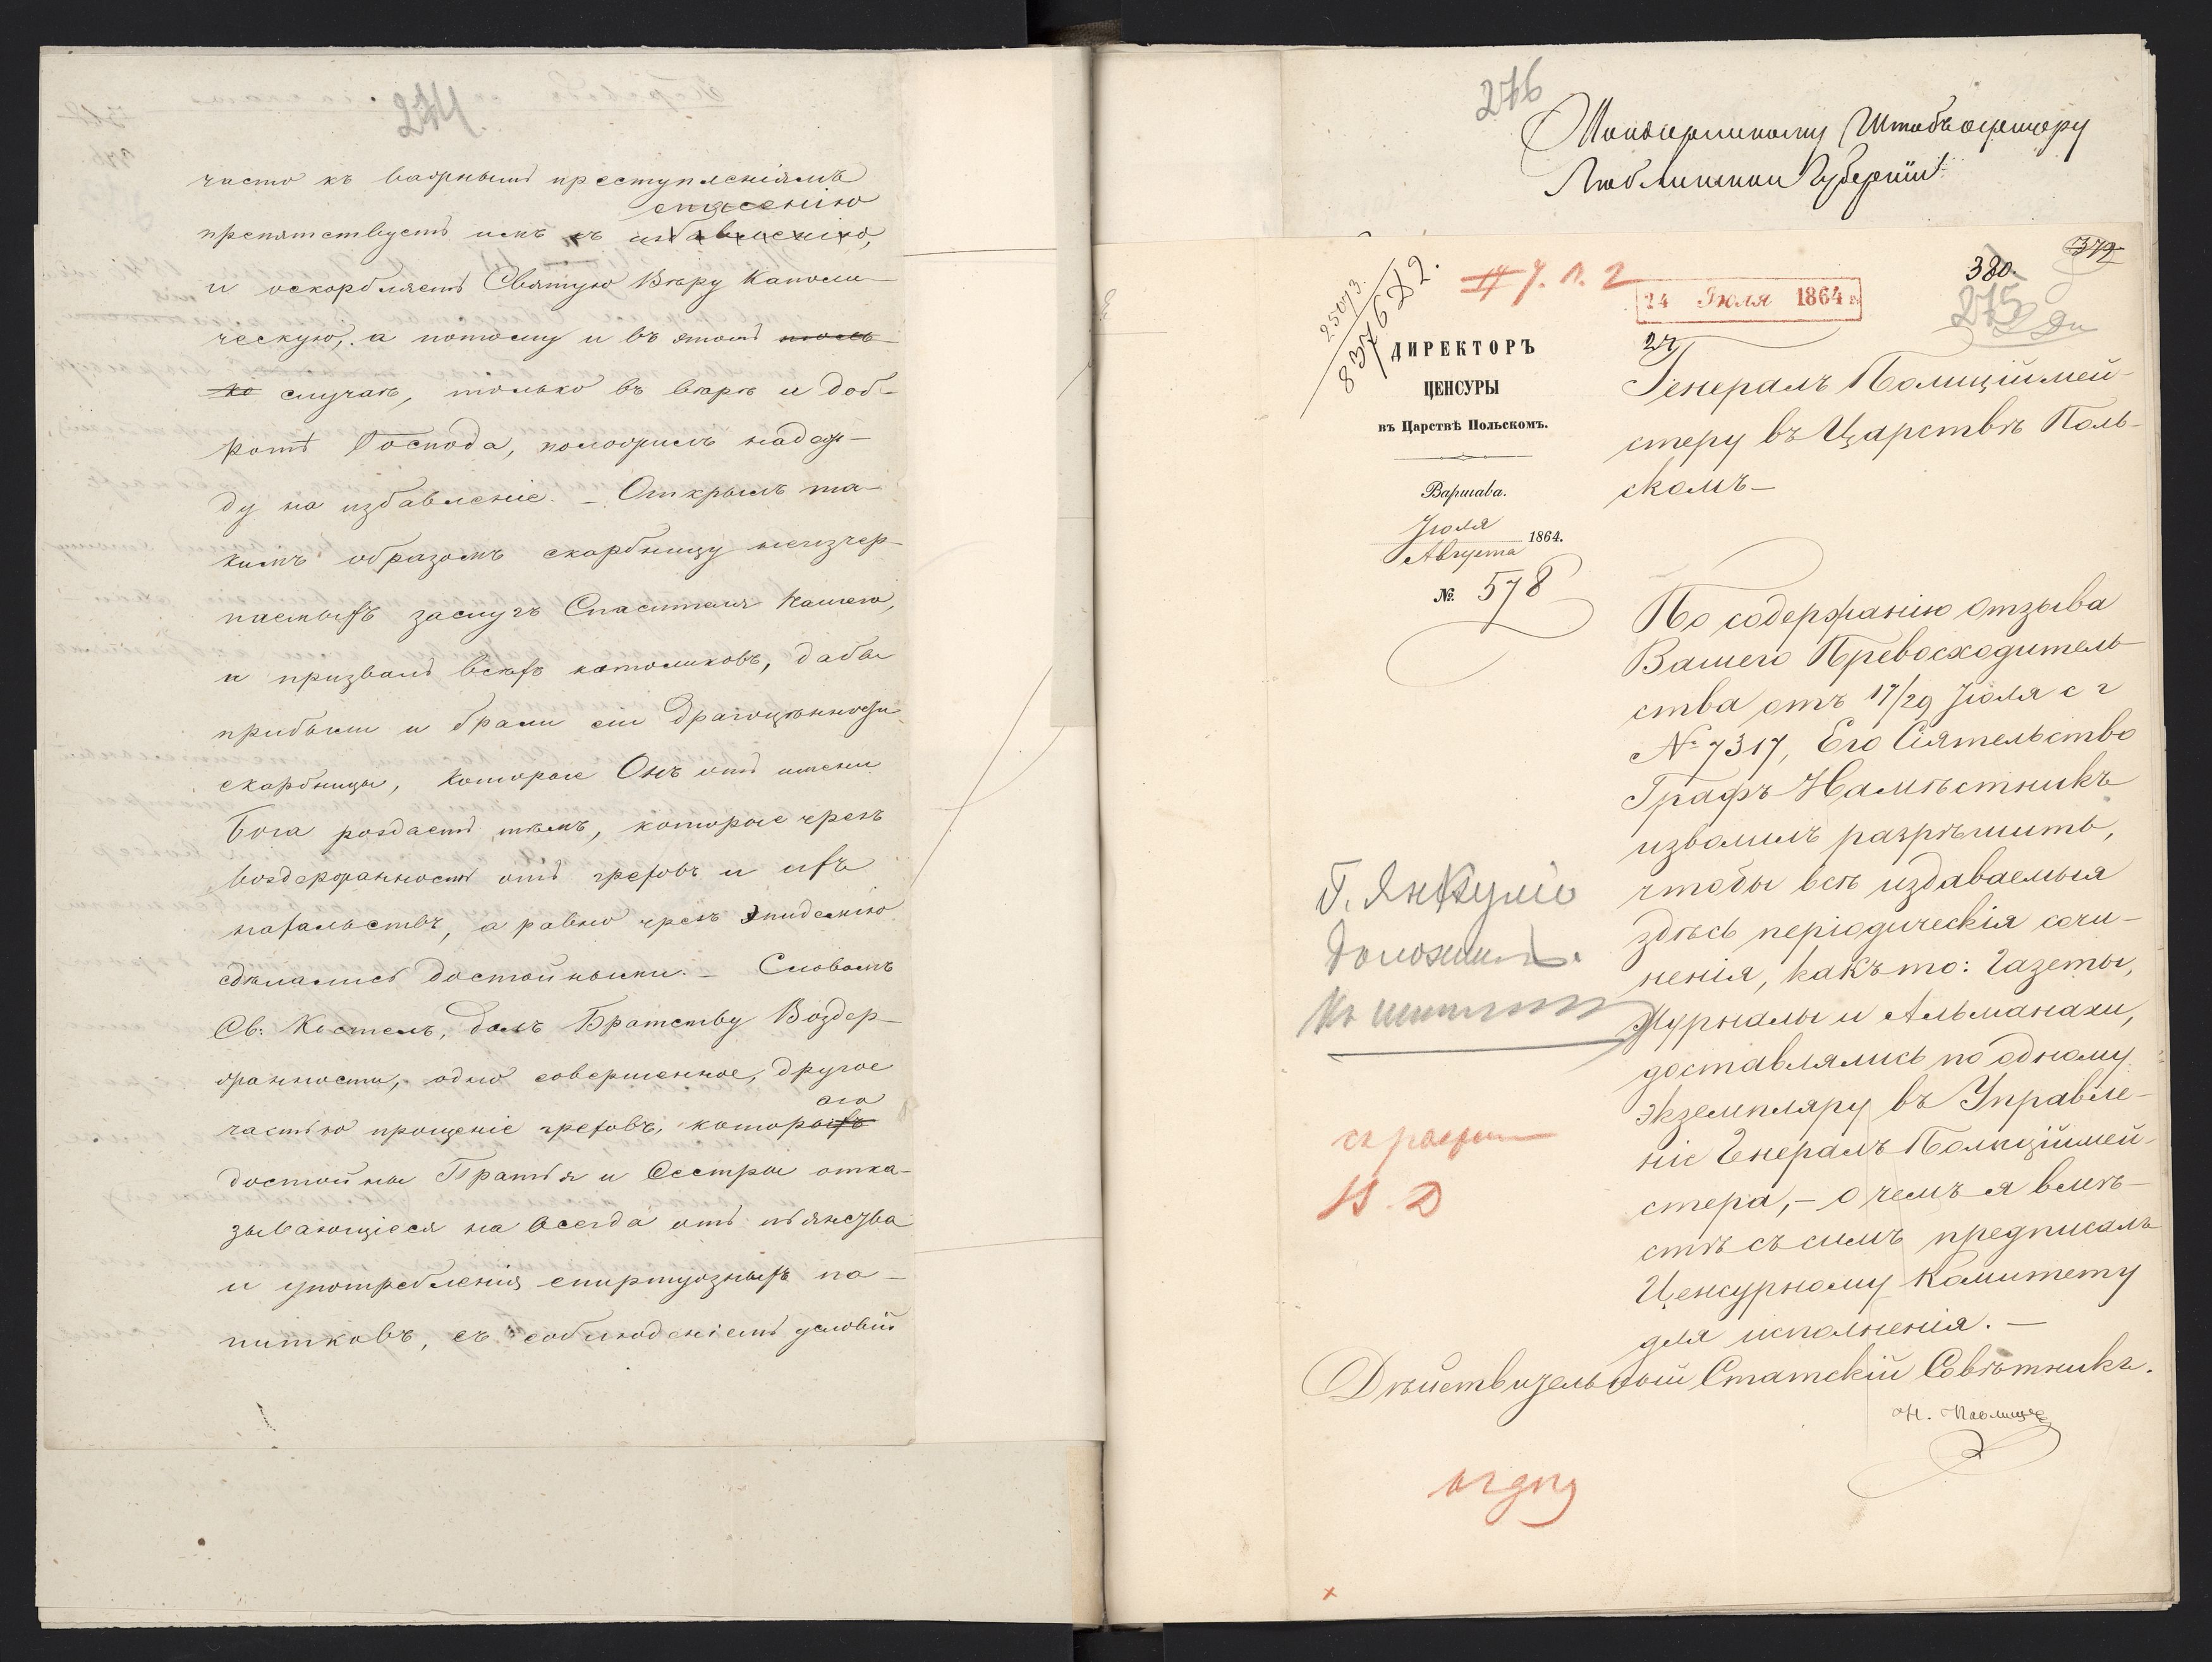 274.
часто къ важнымъ преступленіямъ
спасенію
препятствуетъ имъ къ избавленію,
и оскорбляетъ Святую Вѣру Католи-
ческую, а потому и въ этомъ толь-
ко случаѣ, только въ вѣрѣ и доб-
ротѣ Господа, положилъ надеж-
ду на избавленіе. – Открылъ та-
кимъ образомъ скарбницу неизчер-
паемыхъ заслугъ Спасителя Нашего,
и призвалъ всѣхъ католиковъ, дабы
прибыли и брали сіи драгоцѣнности
скарбницы, которые Онъ отъ имени
Бога роздаетъ тѣмъ, которые чрезъ
воздержанность отъ грѣховъ и ихъ
нахальствъ, а равно чрезъ эпидемію
сдѣлались достойными. – Словомъ
Св: Костелъ, далъ Братству Воздер-
жанности, одно совершенное, другое
аго
частью прощеніе грѣховъ, которыхъ
достойны Братья и Сестры отка-
зывающіеся на всегда отъ пьянства
и употребленія спиртуозныхъ на-
питковъ, съ соблюденіемъ условій
276
Жандармскому Штабъ офицеру
Люблинской Губерніи
379
380.
275
25073.
8376
24 Іюля 1864 г.
ДИРЕКТОРЪ
ЦЕНСУРЫ
въ Царствѣ Польскомъ.
Варшава.
Іюля
Августа 1864.
№ 578
27
Генералъ Полиціймей-
стеру въ Царствѣ Поль-
скомъ –
По содержанію отзыва
Вашего Превосходитель-
ства отъ 17/29 Іюля с г
№ 7317, Его Сіятельство
Графъ Намѣстникъ
изволилъ разрѣшить,
чтобы всѣ издаваемыя
здѣсь періодическія сочи-
ненія, какъ то: Газеты,
Журналы и Альманахи,
доставлялись по одному
экземпляру въ Управле-
ніе Генералъ Полиціймей-
стера, – о чемъ я вмѣ-
стѣ съ симъ предписалъ
Ценсурному Комитету
для исполненія. –
Дѣйствительный Статскій Совѣтникъ.
Н. Павлищевъ
Г. Янкуліо
доложить.